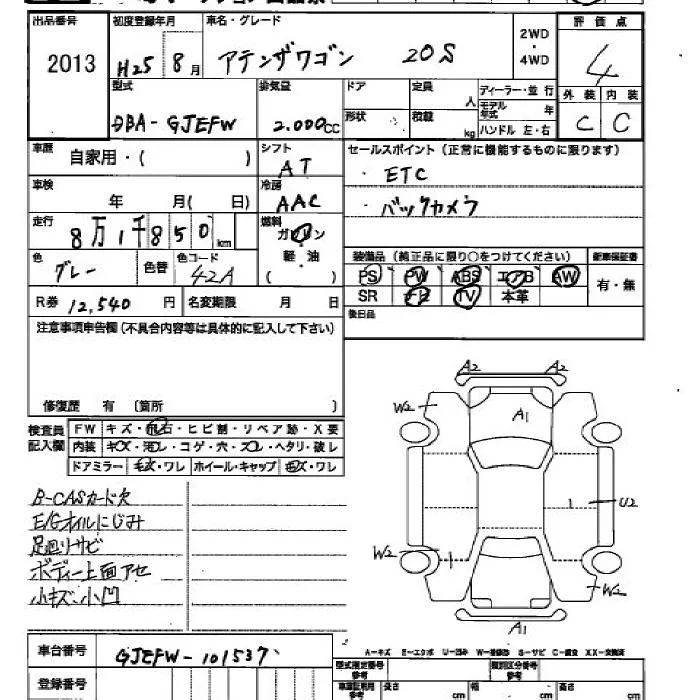 出品番号 初度登録年月 車名・グレード 2WD・4WD 評価点
2013 H25 8月 アテンザワゴン 20S 4
型式 排気量 ドア 定員 人 ディーラー・並行 外装 内装
DBA-GJEFW 2.000cc 形状 積載 kg モデル年式 年 C C
ハンドル 左・右
車歴 自家用・( ) シフト AT セールスポイント(正常に機能するものに限ります)
・ETC
車検 年 月( 日) 冷房 AAC ・バックカメラ
走行 8万1千850km 燃料 ガソリン
軽油
( )
色 グレー 色替 色コード 42A 装備品(純正品に限り○をつけてください) 新車保証書
PS PW ABS エアB AW 有・無
R券 12,540円 名変期限 月 日 SR TV 本革
注意事項申告欄(不具合内容等は具体的に記入して下さい) 後日品
修復歴 有(箇所 )
検査員記入欄 FW キズ・飛石・ヒビ割・リペア跡・X要
内装 キズ・汚レ・コゲ・穴・スレ・ヘタリ・破レ
ドアミラー 毛ズ・ワレ ホイール・キャップ ・ワレ
B-CASカード欠
E/Gオイルにじみ
足廻リサビ
ボディー上面アセ
小キズ・小凹
A2 A2
W2 A1
U2
W2
W2
A1
車台番号 GJEFW-101537
登録番号
A-キズ E-エクボ U-凹み W-補修跡 S-サビ C-腐食 XX-交換済
型式指定番号 参考 類別区分番号 参考
長さ cm 幅 cm 高さ cm